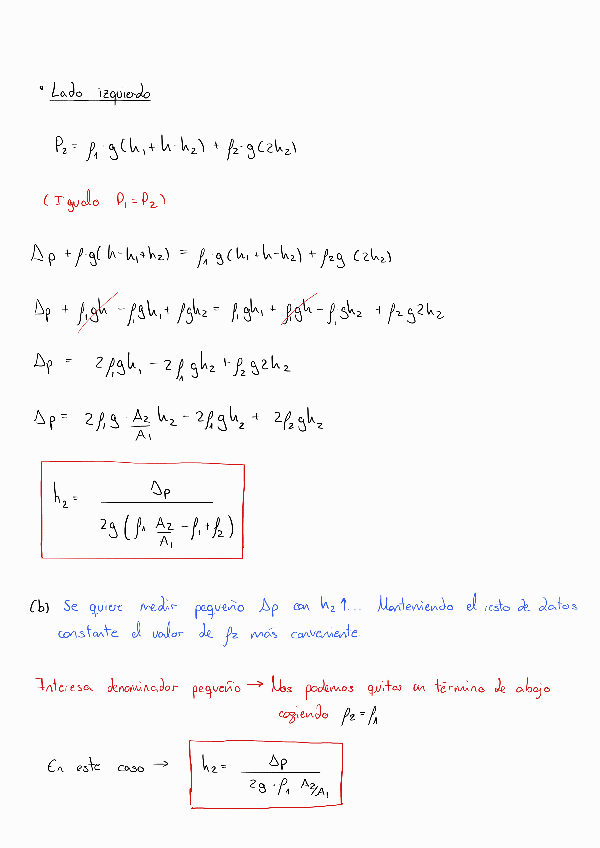 • Lado izquierdo
P₂ = ρ₁·g(h₁+h-h₂) + ρ₂·g(2h₂)
(Igualo P₁=P₂)
Δp + ρ·g(h-h₁+h₂) = ρ₁·g(h₁+h-h₂) + ρ₂g (2h₂)
Δp + ρ₁gh - ρ₁gh₁ + ρgh₂ = ρ₁gh₁ + ρ₁gh - ρ₁gh₂ + ρ₂g2h₂
Δp = 2ρ₁gh₁ - 2ρ₁gh₂ + ρ₂g2h₂
Δp = 2ρ₁g · A₂/A₁ h₂ - 2ρ₁gh₂ + 2ρ₂gh₂
h₂ = Δp / 2g (ρ₁ A₂/A₁ - ρ₁ + ρ₂)
(b) Se quiere medir pequeño Δp con h₂↑... Manteniendo el resto de datos
constante el valor de ρ₂ más conveniente
Interesa denominador pequeño → Nos podemos quitar un término de abajo
cogiendo ρ₂=ρ₁
En este caso → h₂ = Δp / 2g·ρ₁ A₂/A₁